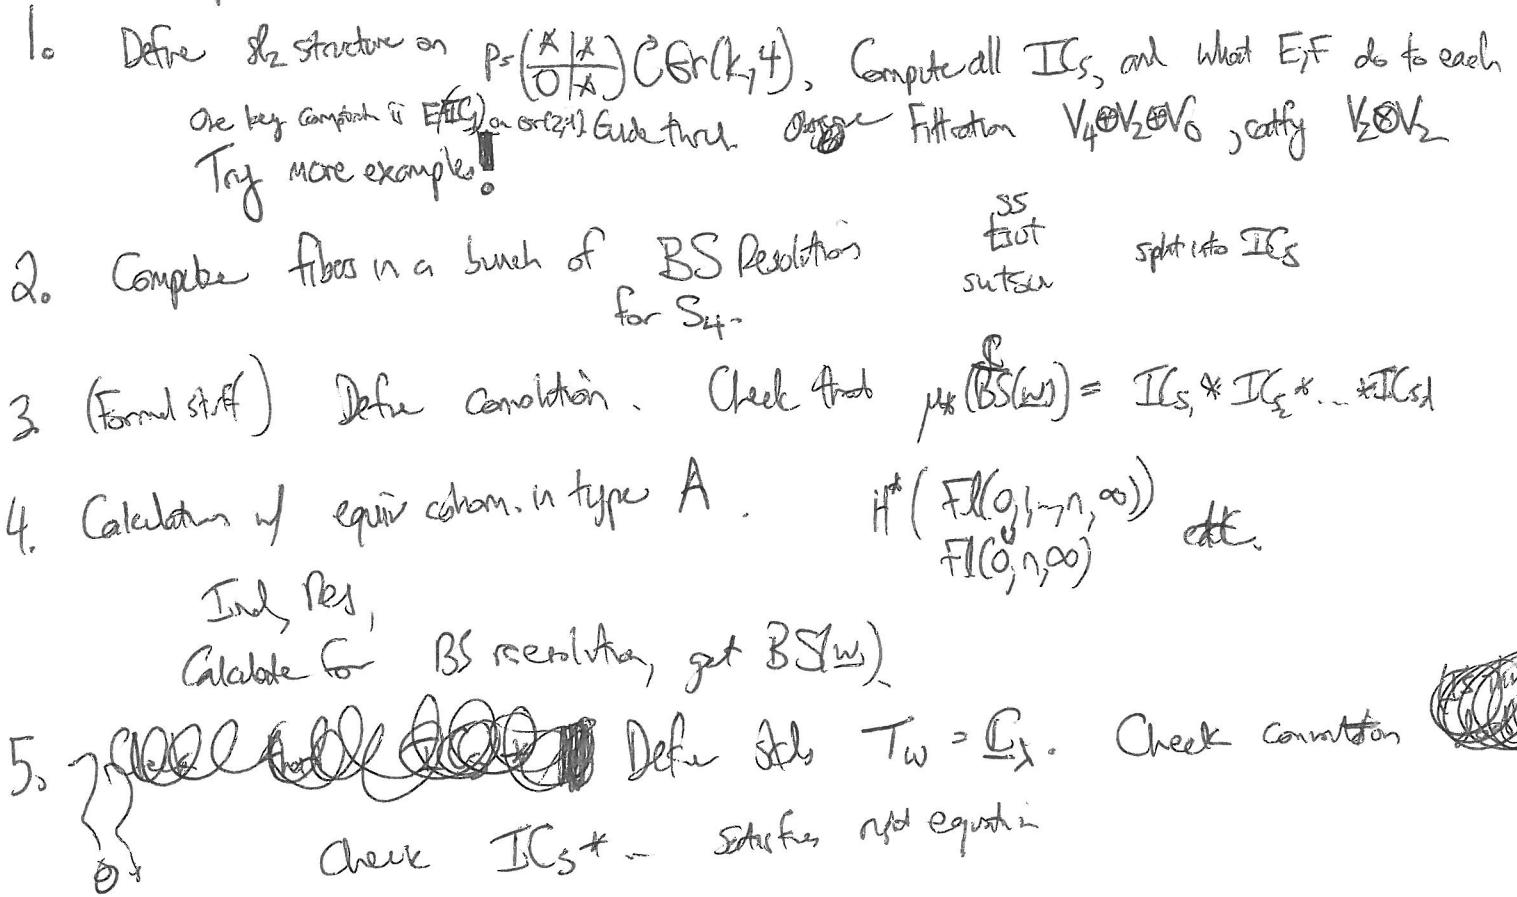 1. Define sl₂ structure on P=(*|*/0|*) C Gr(k,4). Compute all ICs, and what E,F do to each
One key computation is E(IC) on Gr(2,4). Guide thru Filtration V₄⊕V₂⊕V₀, catfy V₂⊗V₂
Try more examples!
2. Compute fibers in a bunch of BS Resolutions for S₄. ss tsut sutsu split into ICs
3. (Formal stuff) Define convolution. Check that μ*(C BS(w)) = ICs₁ * ICs₂ * ... * ICsd
4. Calculation w/ equiv cohom. in type A. H*(Fl(0,1,...,n,∞)) etc.
Fl(0,n,∞)
Ind, Res,
Calculate for BS resolution, get BS(w).
5. Define stds T_w = C_λ. Check convolution
Check ICs * ... satisfies right equation